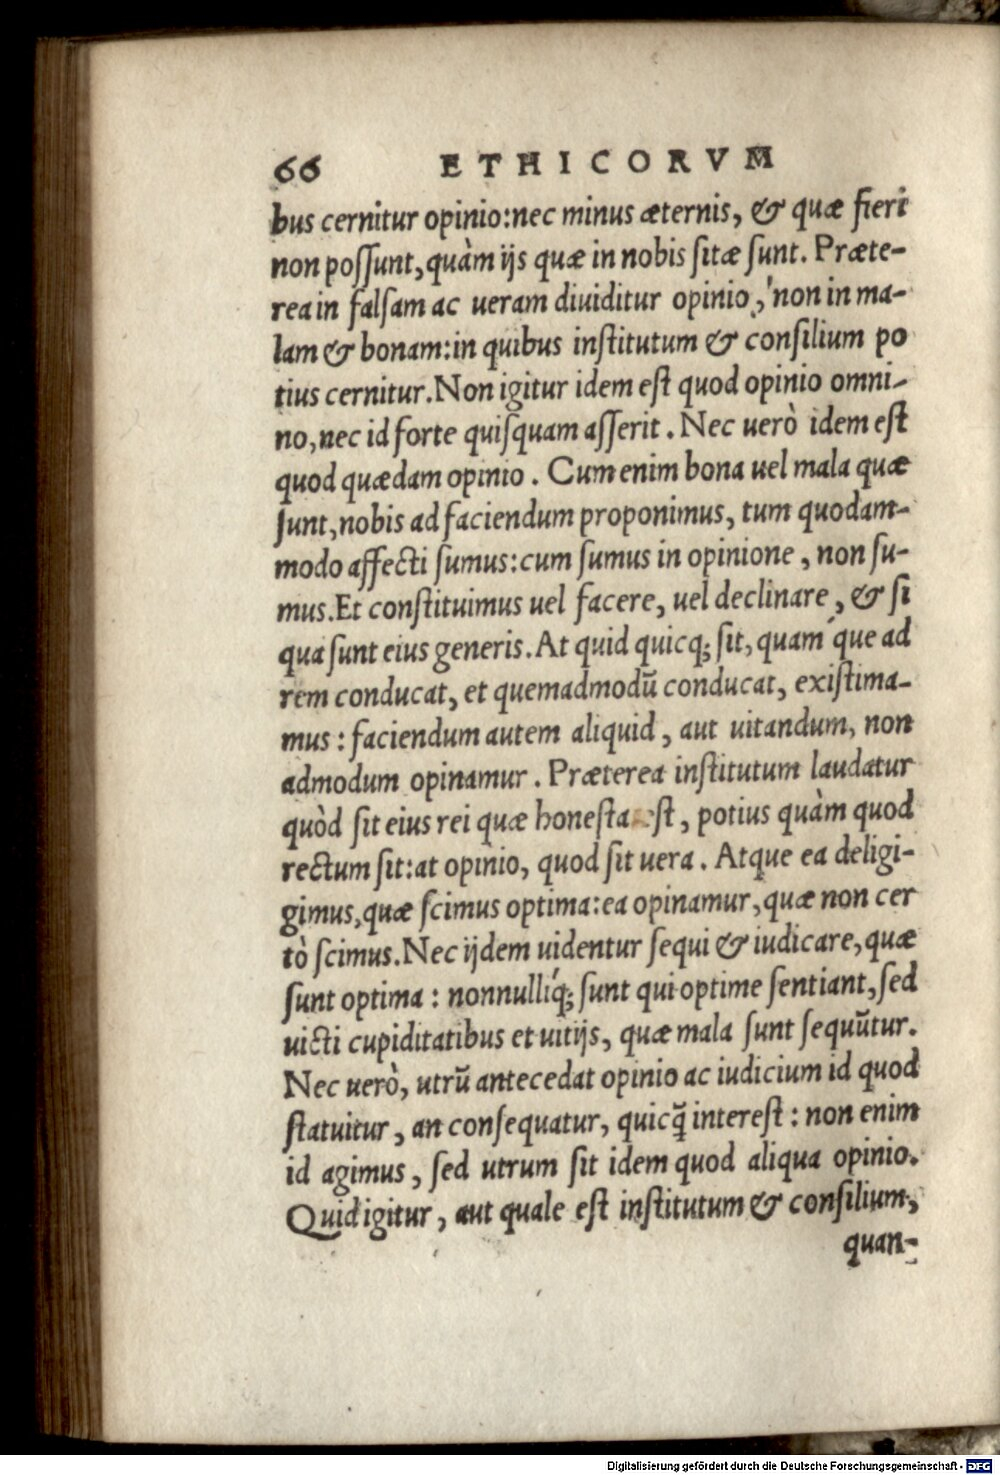 66 ETHICORVM
bus cernitur opinio: nec minus æternis, & quæ fieri
non poſſunt, quàm ijs quæ in nobis ſitæ ſunt. Præte-
rea in falſam ac ueram diuiditur opinio, non in ma-
lam & bonam: in quibus inſtitutum & conſilium po
tius cernitur. Non igitur idem eſt quod opinio omni-
no, nec id forte quiſquam aſſerit. Nec uerò idem eſt
quod quædam opinio. Cum enim bona uel mala quæ
ſunt, nobis ad faciendum proponimus, tum quodam-
modo affecti ſumus: cum ſumus in opinione, non ſu-
mus. Et conſtituimus uel facere, uel declinare, & ſi
qua ſunt eius generis. At quid quicq; ſit, quam que ad
rem conducat, et quemadmodū conducat, exiſtima-
mus: faciendum autem aliquid, aut uitandum, non
admodum opinamur. Præterea inſtitutum laudatur
quòd ſit eius rei quæ honeſta eſt, potius quàm quod
rectum ſit: at opinio, quod ſit uera. Atque ea deligi-
gimus, quæ ſcimus optima: ea opinamur, quæ non cer
tò ſcimus. Nec ijdem uidentur ſequi & iudicare, quæ
ſunt optima: nonnulliq́; ſunt qui optime ſentiant, ſed
uicti cupiditatibus et uitijs, quæ mala ſunt ſequūtur.
Nec uerò, utrū antecedat opinio ac iudicium id quod
ſtatuitur, an conſequatur, quicq̄ intereſt: non enim
id agimus, ſed utrum ſit idem quod aliqua opinio.
Quid igitur, aut quale eſt inſtitutum & conſilium,
quan-
Digitalisierung gefördert durch die Deutsche Forschungsgemeinschaft - DFG